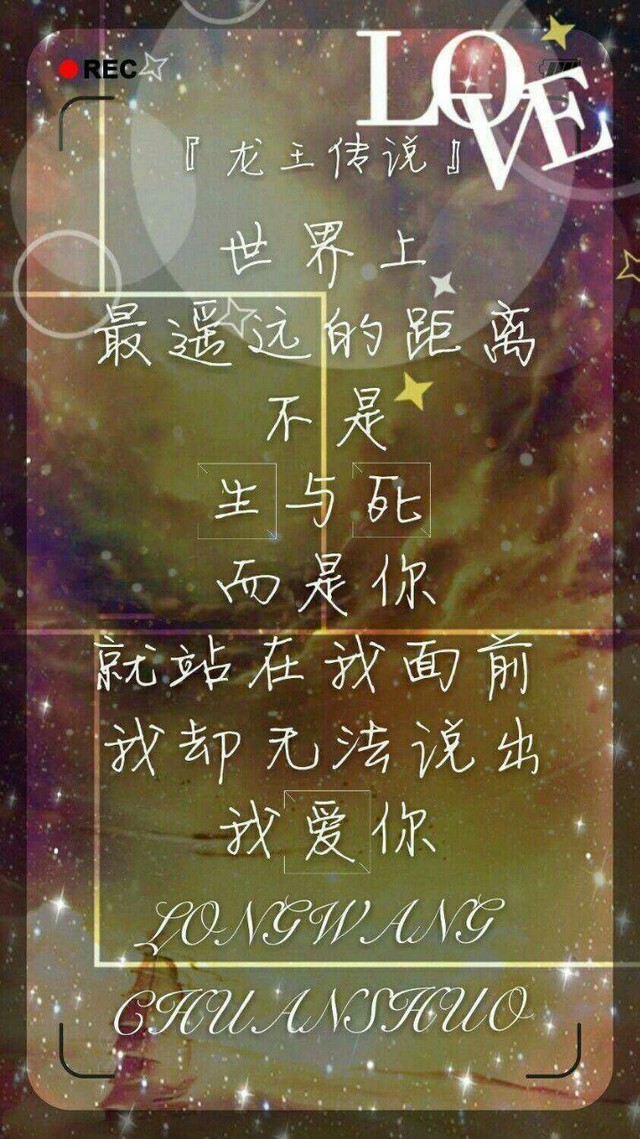 REC
LOVE
『龙王传说』
世界上
最遥远的距离
不是
生与死
而是你
就站在我面前
我却无法说出
我爱你
LONGWANG
CHUANSHUO